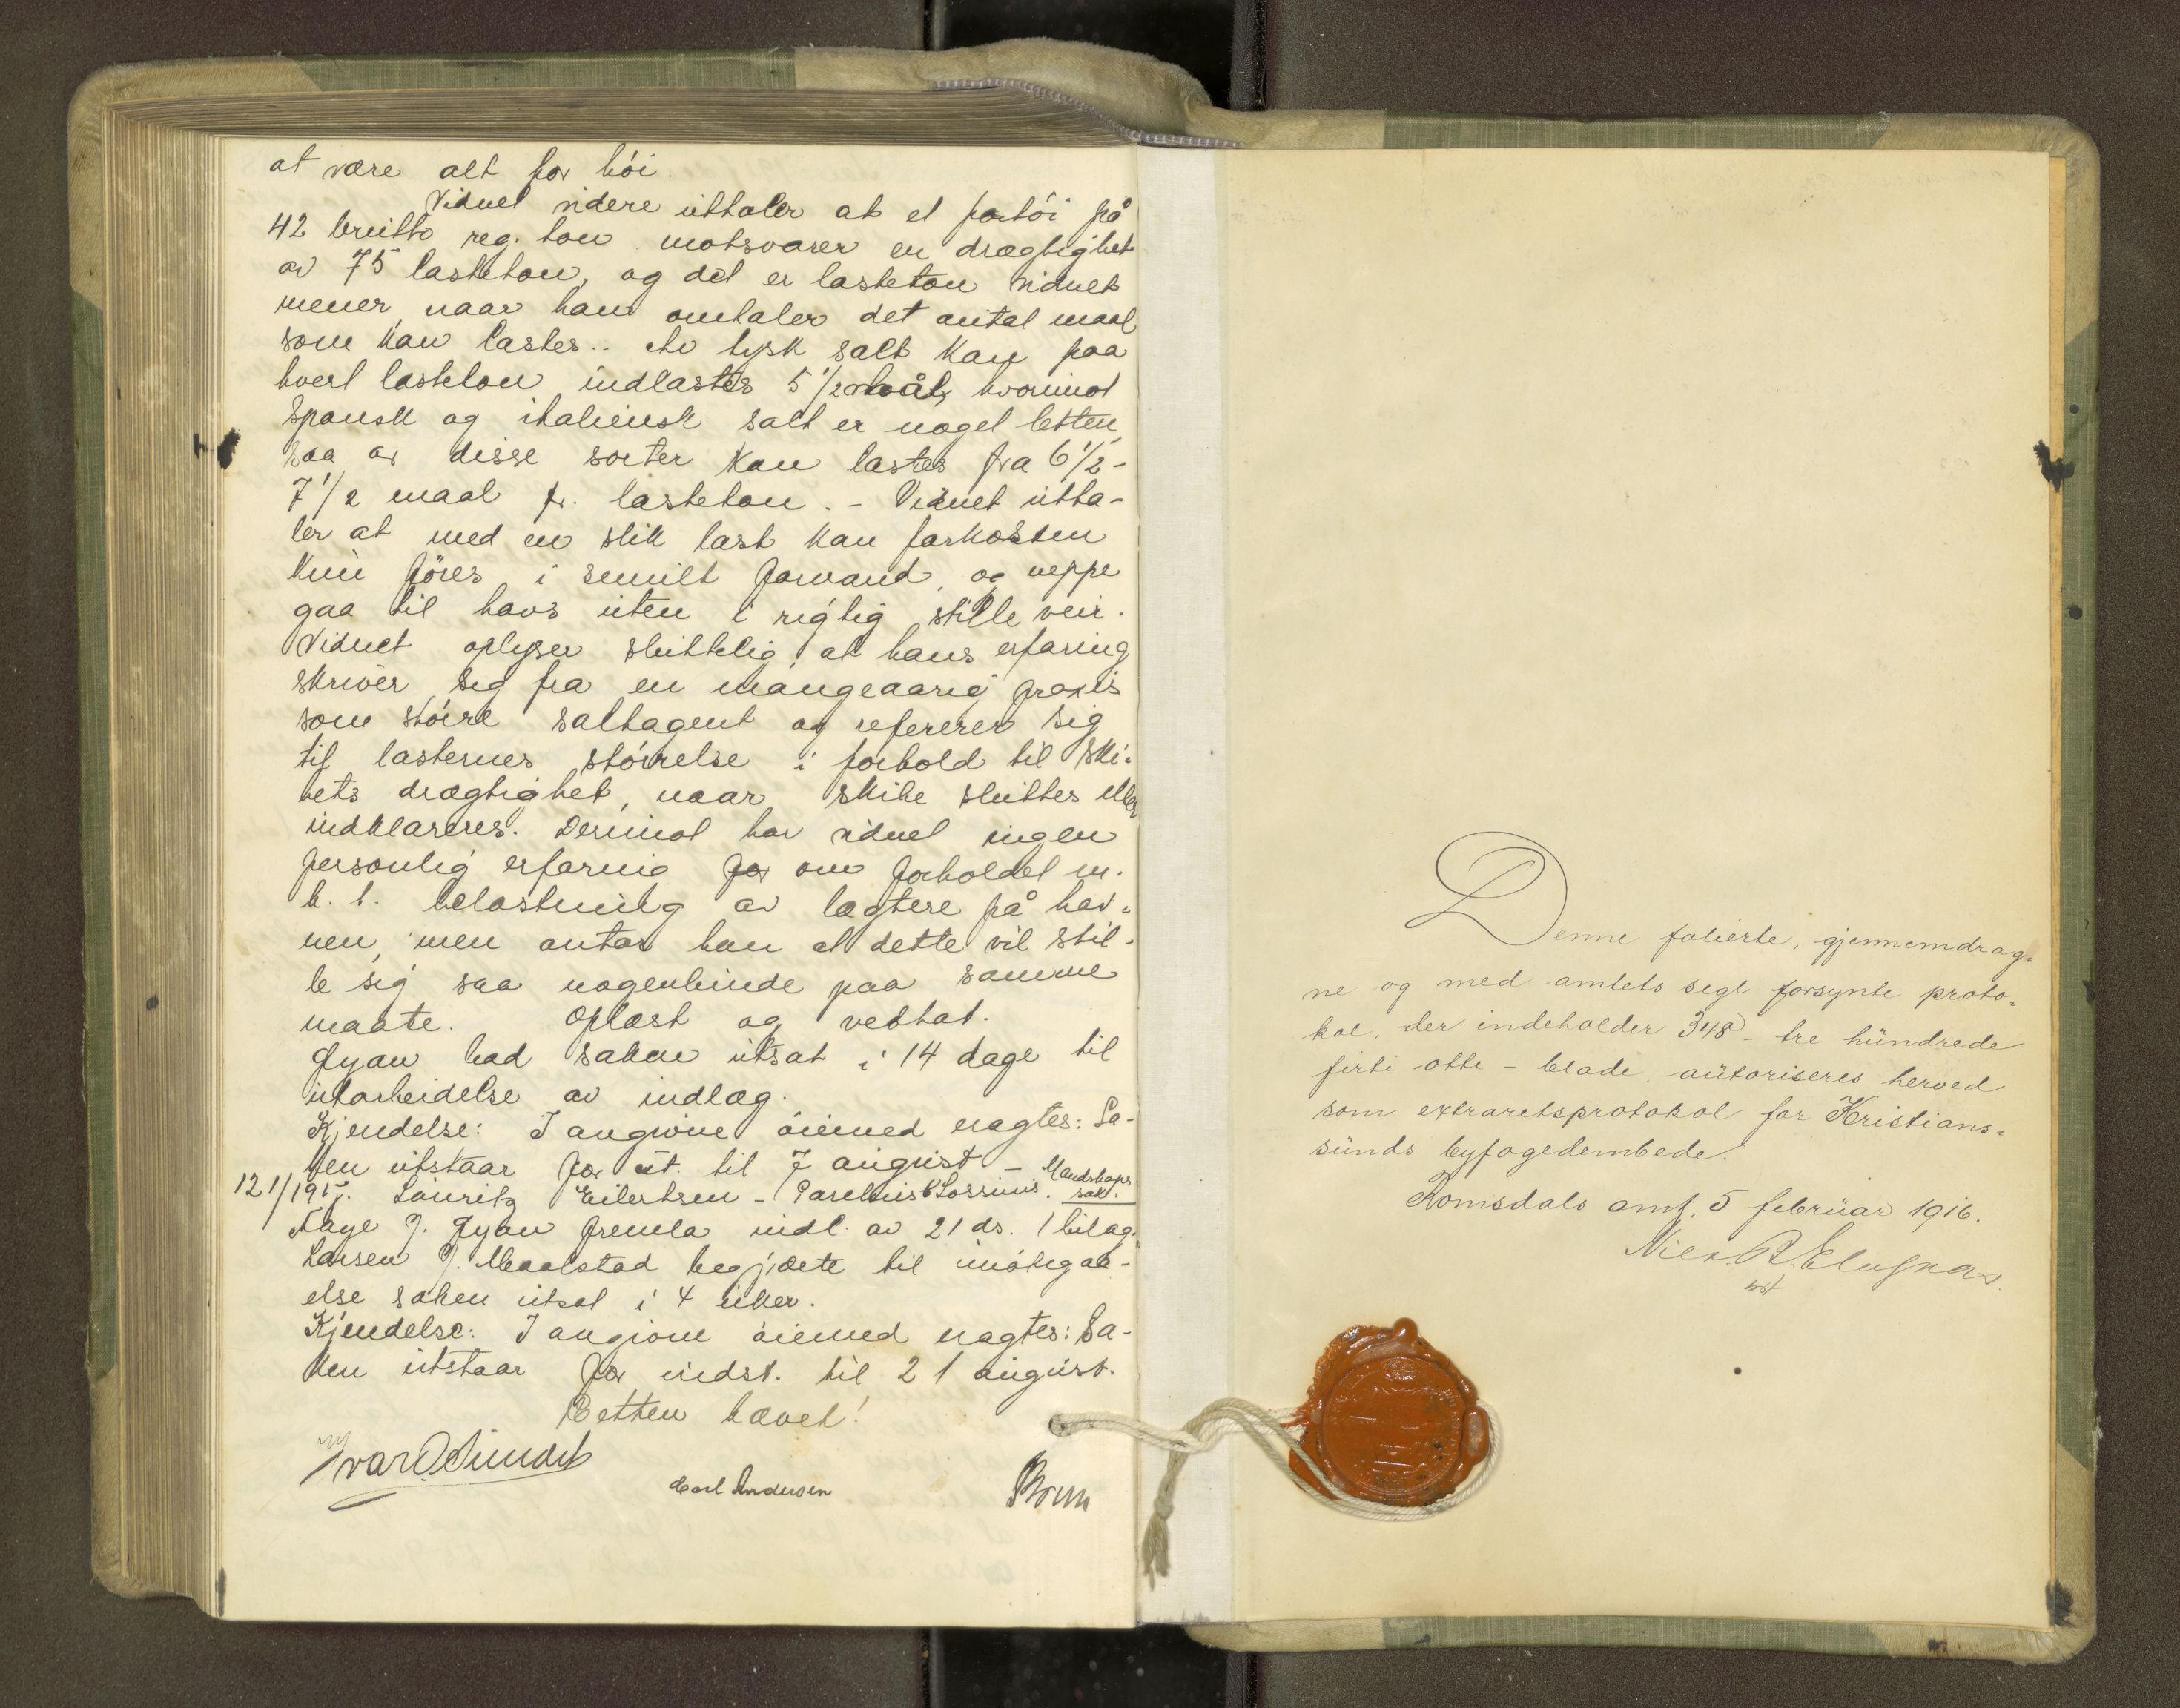 at være alt for høi.
Vidnet videre uttaler at et fartøi på
42 brutto reg. ton motsvarer en drægtighet
av 75 lasteton, og det er lasteton vidnet
mener, naar han omtaler det antal maal
som kan lastes.. Av tysk salt kan paa
hvert lasteton indlastes 5 1/2 mål, hvorimot
Spansk og italiensk salt er noget lettere,
saa av disse sorter kan lastes fra 6 1/2 -
7 1/2 maal pr. lasteton. - Vidnet utta-
ler at med en slik last kan farkosten
kun føres i smult farvand, og neppe
gaa til havs uten i rigtig stille veir.
Vidnet oplyser sluttelig, at hans erfaring
skriver sig fra en mangeaarig praxis
som større saltagent og refererer sig
til lasternes størrelse i forhold til ski-
bets drægtighet, naar skibe sluttes eller
indklareres. Derimot har vidnet ingen
personlig erfaring for om forholdet m.
h. t. belastning av lægtere på hav-
nen, men antar han at dette vil stil-
le sig saa nogenlunde paa samme
maate. Oplæst og vedtat.
Gyan bad saken utsat i 14 dage til
utarbeidelse av indlæg.
Kjendelse: I angivne øiemed nagtes: Sa-
ken utstaar for st. til 7 august -
121/1917. Lauritz Eilertsen - Parelius & Lossius. Mandskaps sak.
Aage J. Gyan fremla indl. av 21 ds. 1 bilag.
Larsen J. Maalstad begjærte til imøtegaa-
else saken utsat i 4 uker.
Kjendelse: I angivne øiemed nagtes: Sa-
ken utstaar for indst. til 21 august.
Retten hævet!
Carl Andersen
Brun
Denne folierte, gjennemdrag-
ne og med amtets segl forsynte proto-
kol, der indeholder 348 - tre hundrede
firti otte - blade, autoriseres herved
som extraretsprotokol for Kristians-
sunds byfogedembede.
Romsdals amt, 5 februar 1916.